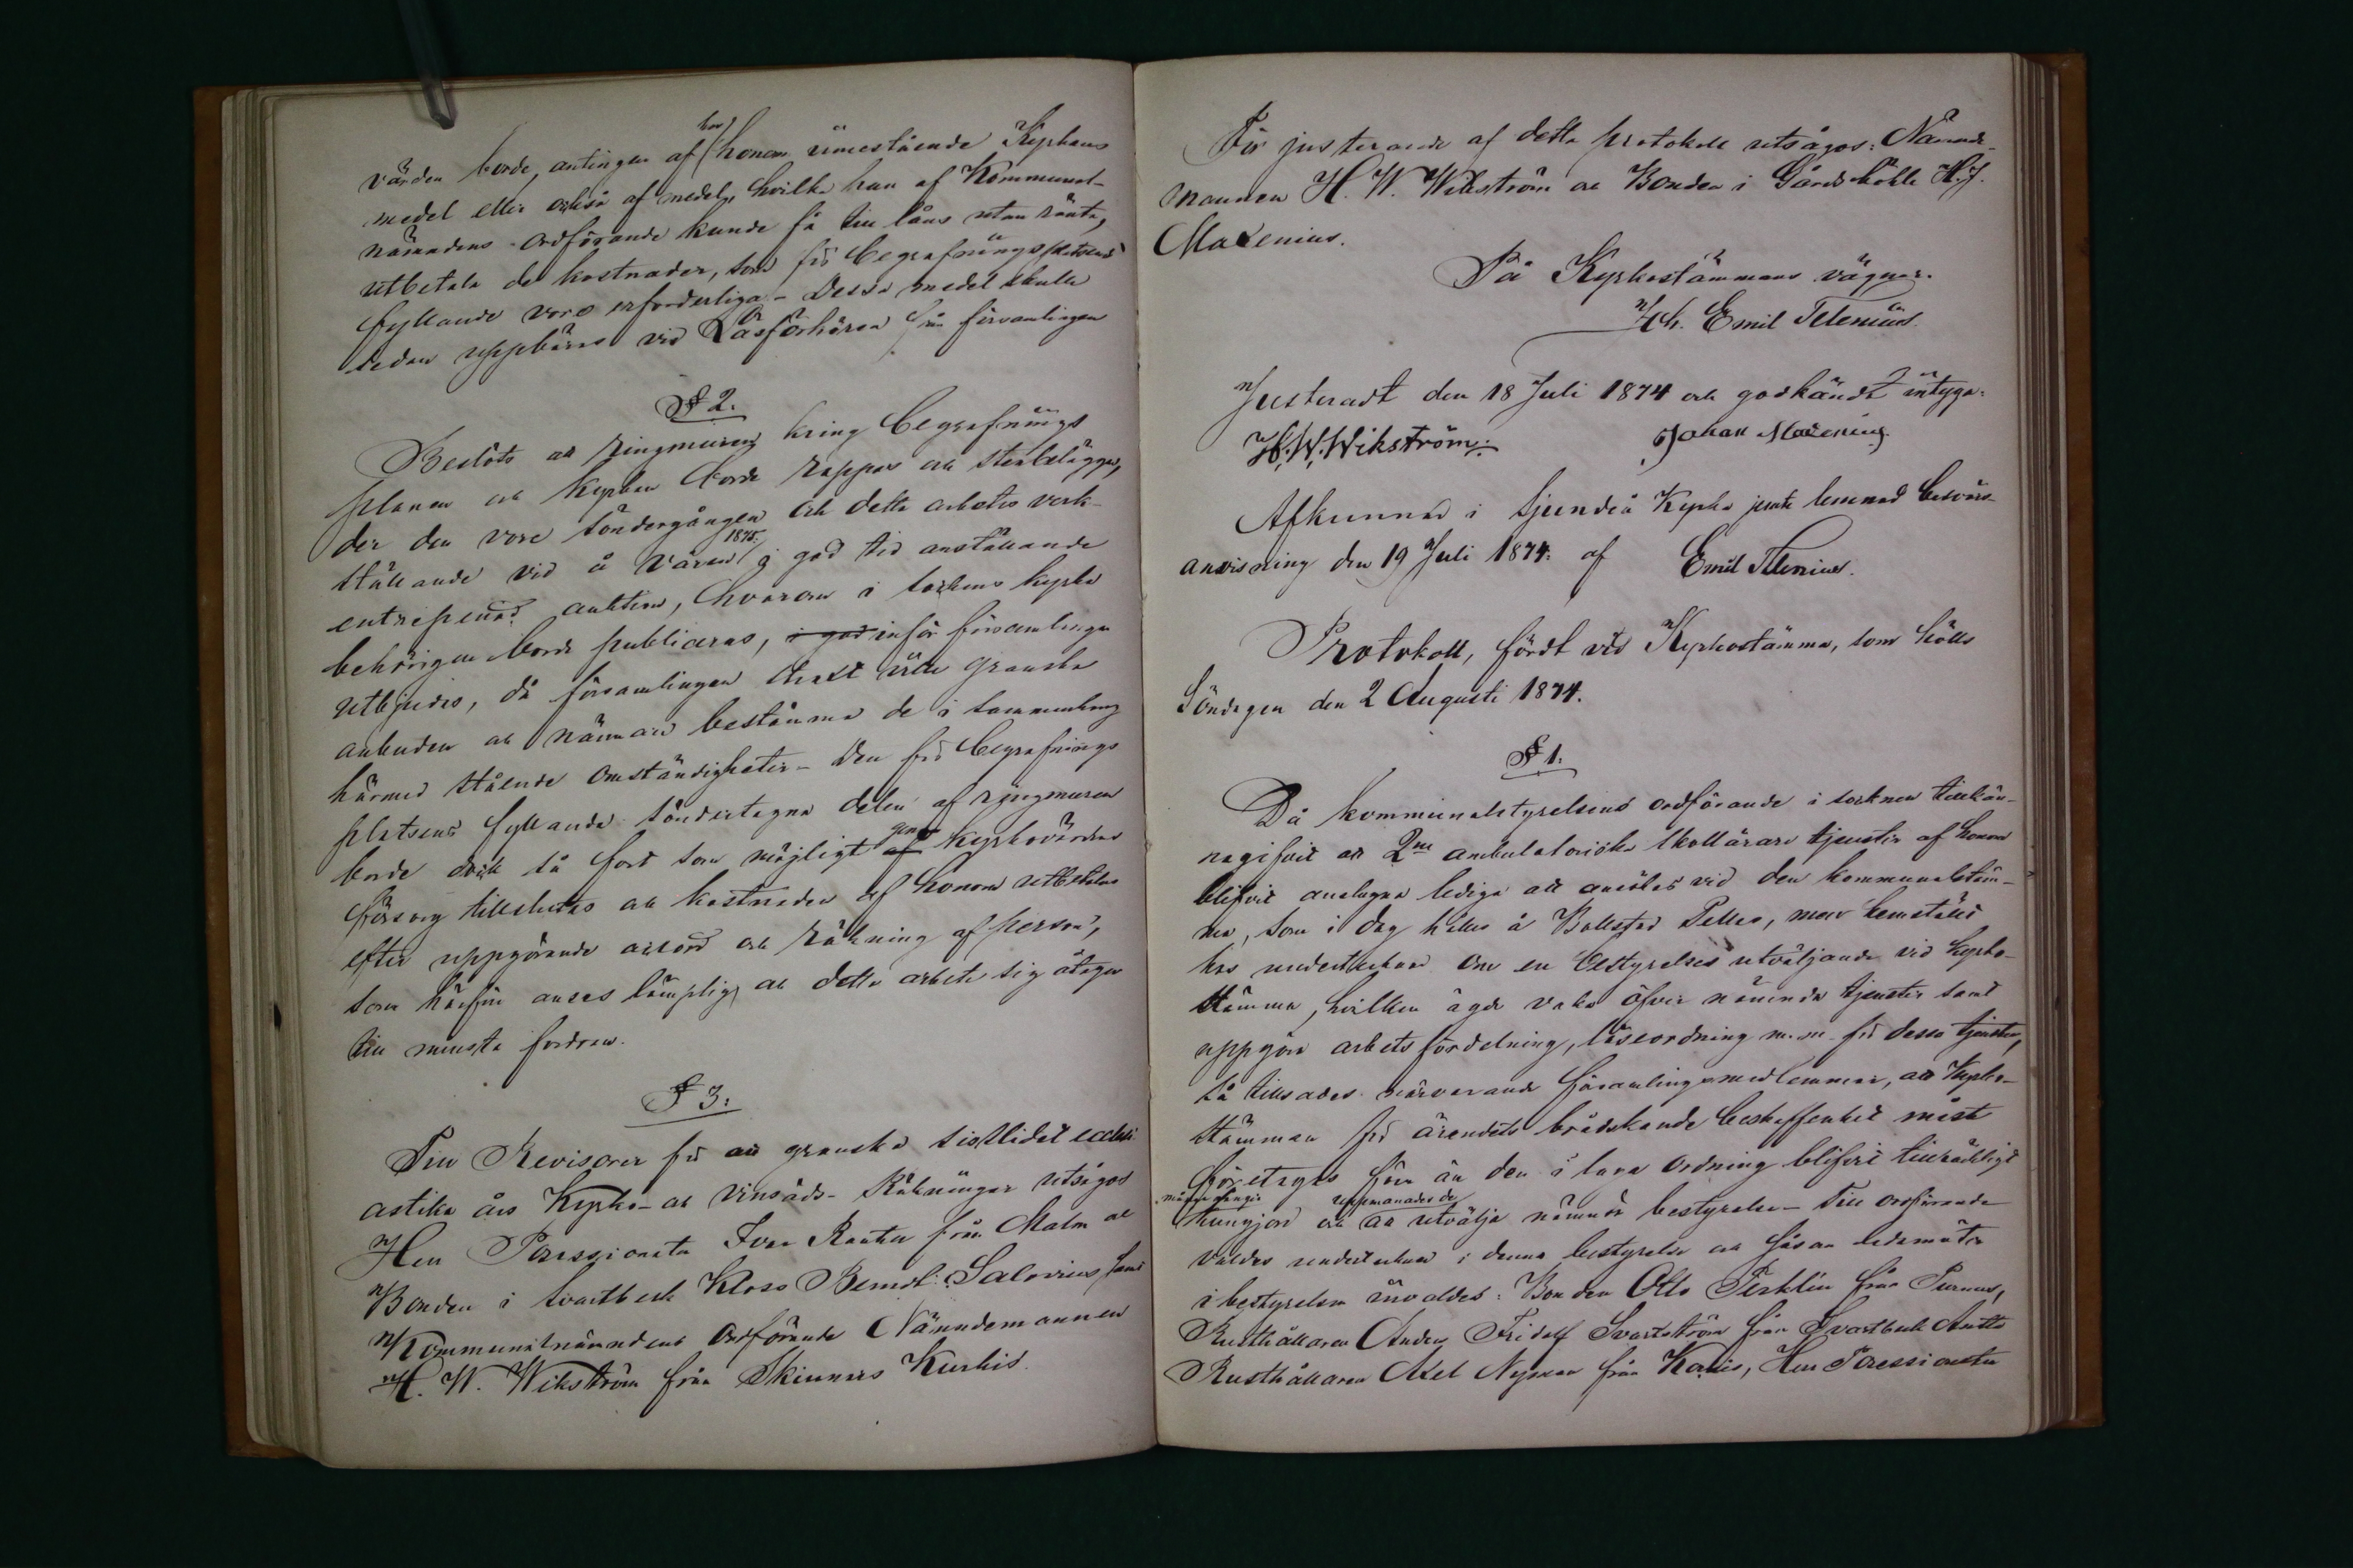 värden borde, antingen af hos honom innestående Kyrkans
medel eller också af medel, hvilka han af Kommunal-
nämndens ordförande kunde få till låns utan ränta,
utbetala de kostnader, som för begrafningsplatsens
fyllande voro erforderliga - Dessa medel skulle
sedan uppbäras vid Läsförhören från församlingen
§ 2.
Beslöts att ringmuren kring begrafnings
planen och kyrkan borde rappas och stenbeläggas,
der den vore söndergången och detta arbetes verk-
ställande vid å våren 1875 i god tid anställande
entreprenad auktion, hvarom i sockens kyrka
behörigen borde publiceras, i god inför församlingen
utbjudas, då församlingen strax ville granska
anbuden och närmare bestämma de i sammanhang
härmed stående omständigheter - Den för begrafnings
platsens fyllande söndertagna delen af ringmuren
borde dock så fort som möjligt af genom kyrkovärdens
försorg tillslutas och kostnaden af honom utbetalas
efter uppgörande ackord och räkning af person,
som härför anses lämplig och detta arbete sig åtager
till minsta fordran.
§ 3.
Till Revisorer för att granska sistlidet ecclesi
astika års Kyrko- och Vinsäds- Räkningar utsågos
Herr Possessionaten Ivar Rautell från Malm och
Bonden i Svartbeck Kloss Berndt Salovius samt
Kommunalnämndens Ordförande Nämndemannen
H. W. Wikström från Skinnars Kurkis.
För justerande af detta protokoll utsågos: Nämnde-
mannen H. W. Wikström och Bonden i Gårdsböhle H. J.
Maxenius.
På Kyrkostämmans vägnar.
Joh. Emil Telenius.
Justeradt den 18 Juli 1874 och godkändt intyga:
H. W. Wikström. Johan Maxenius.
Afkunnad i Sjundeå Kyrka jemte lemnad besvärs-
anvisning den 19 Juli 1874. af Emil Telenius.
Protokoll, fördt vid Kyrkostämma, som hölls
Söndagen den 2 Augusti 1874.
§ 1.
Då kommunalstyrelsens ordförande i socknen tillkän-
nagifvit att 2ne ambulatoriska skollärare tjenster af honom
blifvit anslagna lediga att ansökas vid den kommunalstäm-
ma, som i dag hålles å Bollstad Pelles, men hemställt
hos undertecknad om en bestyrelses utväljande vid kyrko-
stämma, hvilken ägde vaka öfver nämnda tjenster samt
uppgöra arbetsfördelning, läseordning m.m. för dessa tjenster,
så tillsades närvarande församlingsmedlemmar, att Kyrko-
stämman för ärendets brådskande beskaffenhet måst
företagas förr än den i laga ordning blifvit tillräckligt
många gånger kungjord och uppmanades de att utvälja nämnda bestyrelse - Till ordförande
valdes undertecknad i denna bestyrelse och såsom ledamöter
i bestyrelsen invaldes: Bonden Otto Perklén från Purnus,
Rusthållaren Anders Fridolf Svartström från Svartbeck Antts
Rusthållaren Axel Nyman från Karis, Herr Possessionaten